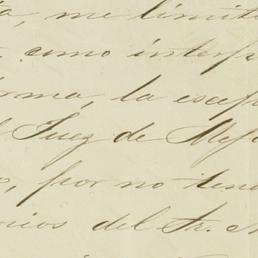 me limit
como interp
la excep
Juez de
por no tene
del Sr.